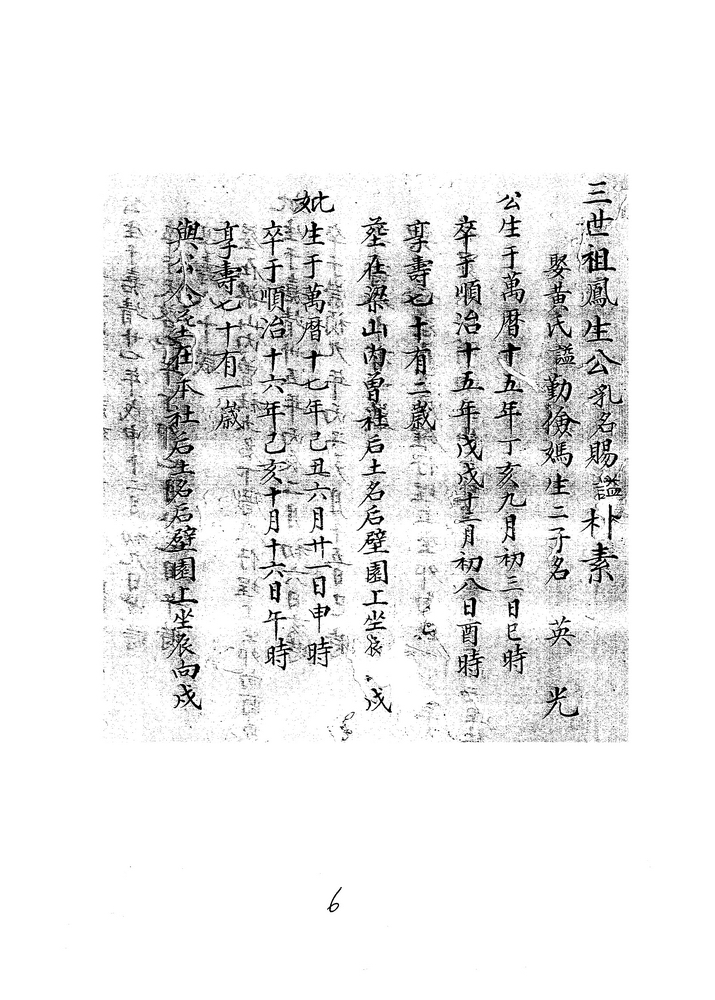 三世祖鳳生公乳名賜謚朴素
娶黃氏謚勤儉媽生二子名 英 光
公生于萬曆十五年丁亥九月初三日巳時
卒于順治十五年戊戌十二月初八日酉時
享壽七十有二歲
塋在梁山內曾社后土名后壁園上坐辰 戌
妣生于萬曆十七年己丑六月廿一日申時
卒于順治十六年己亥十月十六日午時
享壽七十有一歲
與公 塋在本社后土名后壁園上坐辰向戌
6